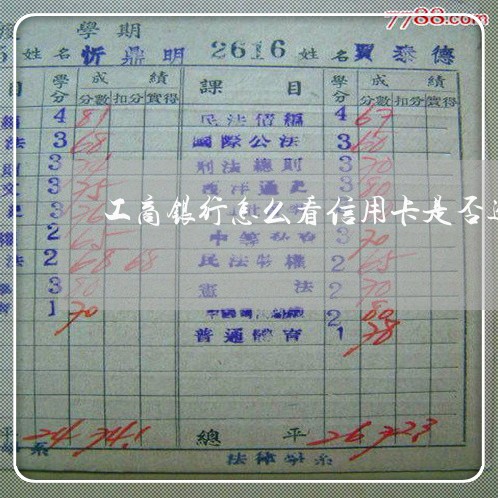 7788.com
學期
姓名 忻鼎明 2616 姓名 賈泰德
目 學分 成績 課目 學分 成績
分數 扣分 實得 分數 扣分 實得
4 81 民法債編 4 67
法 3 68 國際公法 3 60
3 刑法總則 3 70
3 75 西洋通史 3 80
工商銀行怎么看信用卡是否
2 65 3 70
法 2 68 68 民法物權 2 65
3 80 憲法 2 70
育 1 70 2 80
普通體育 1 78
平 24 74.1 總平 26 72.3
系 法律學系